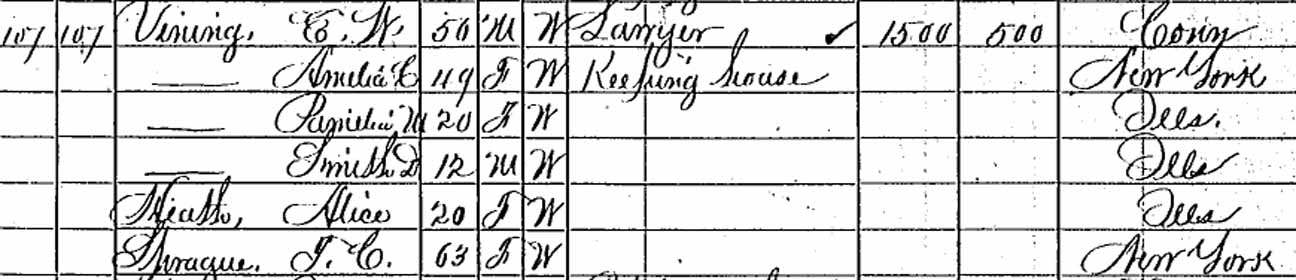 107 107 Vining, E. W. 50 M W Lawyer ✓ 1500 500 Conn
—— Amelia C 49 F W Keeping house New York
—— Pamelia M 20 F W Ills.
—— Smith D 12 M W Ills
Heath, Alice 20 F W Ills
Sprague, T. C. 63 F W New York